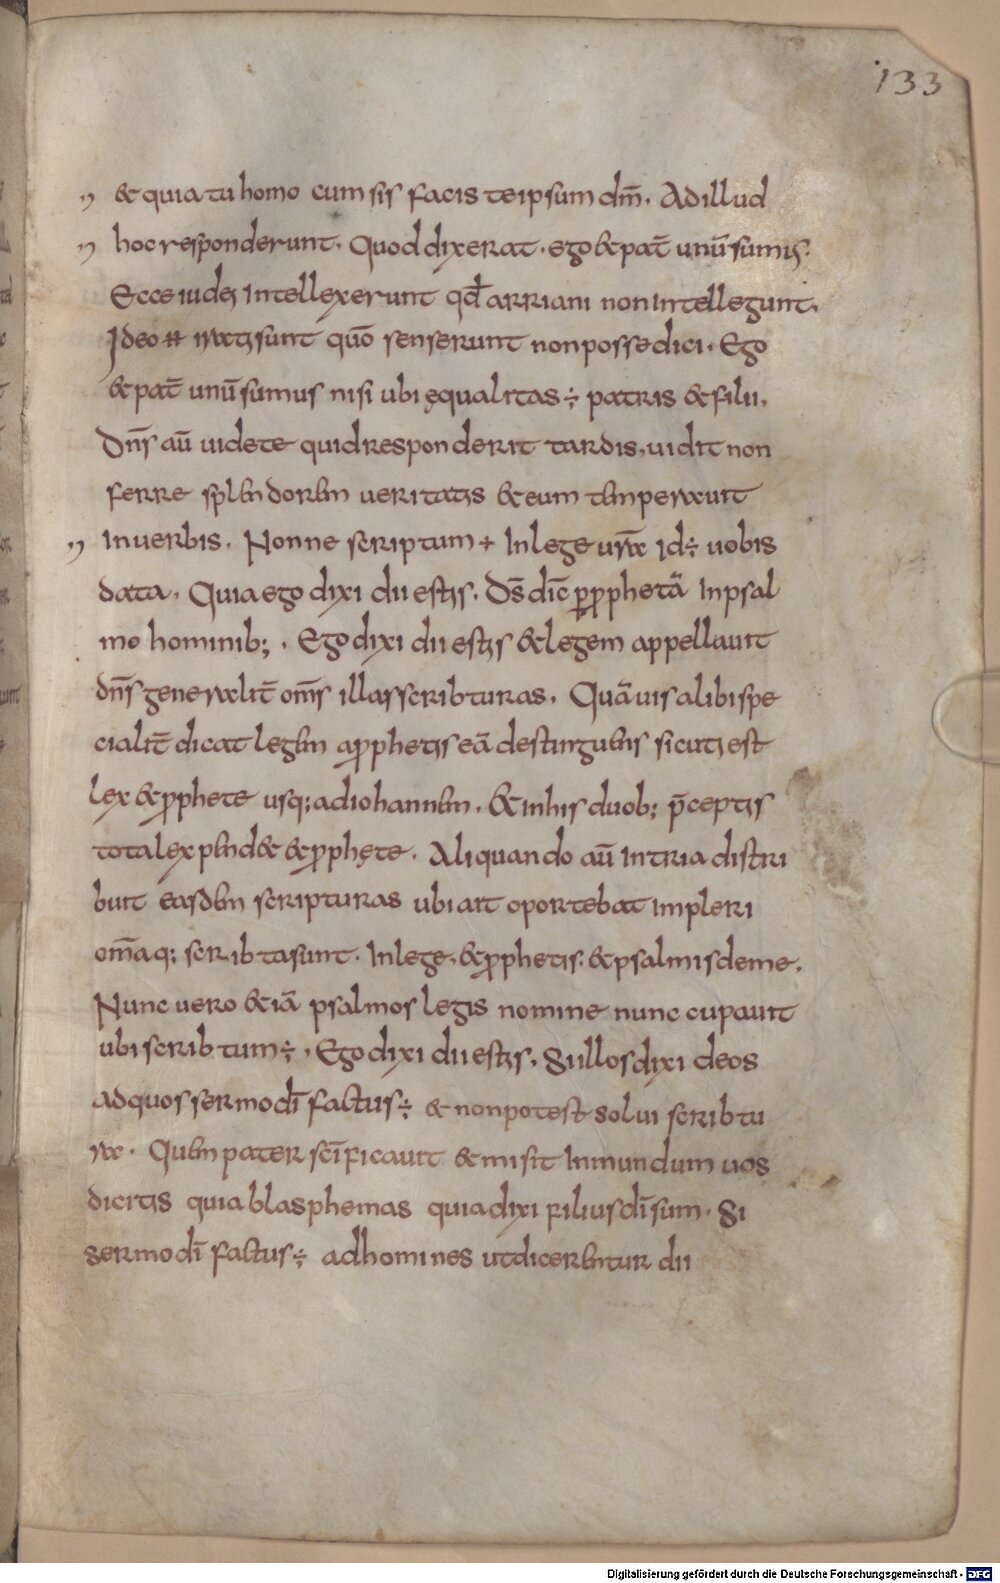 133
” & quia tu homo cum sis facis te ipsum dm̄. Ad illud
” hoc responderunt. Quod dixerat. ego & pat̄ unū sumus.
Ecce iudei intellexerunt qd̄ arriani non intellegunt.
Ideo H irati sunt quō senserunt non posse dici. Ego
& pat̄ unū sumus nisi ubi ęqualitas ÷ patris & filii.
Dn̄s aū uidete quid responderit tardis, uidit non
ferre splendorem ueritatis & eum temperauit
” In uerbis. Nonne scriptum ÷ In lege ur̄a id÷ uobis
data. Quia ego dixi dii estis. Ds̄ dic̄ ꝑ ꝓphetā In psal
mo hominib; . Ego dixi dii estis & legem appellauit
dn̄s generalit̄ om̄s illas scribturas. Quāuis alibi spe
cialit̄ dicat legem aꝓphetis eā destinguens sicuti est
lex & ꝓphete usq; ad iohannem. & in his duob; p̄ceptis
tota lex pend& & ꝓphęte. Aliquando aū In tria distri
buit easdem scripturas ubi ait oportebat impleri
om̄a q; scribta sunt. In lege. & ꝓphetis. & psalmis de me.
Nunc uero &iā psalmos legis nomine nuncupauit
ubi scribtum ÷ . Ego dixi dii estis. Si illos dixi deos
ad quos sermo dī factus ÷ & non potest solui scribtu
ra. Quem pater sc̄ificauit & misit In mundum uos
dicitis quia blasphemas quia dixi filius dī sum. Si
sermo dī factus ÷ ad homines ut dicerentur dii
Digitalisierung gefördert durch die Deutsche Forschungsgemeinschaft - DFG